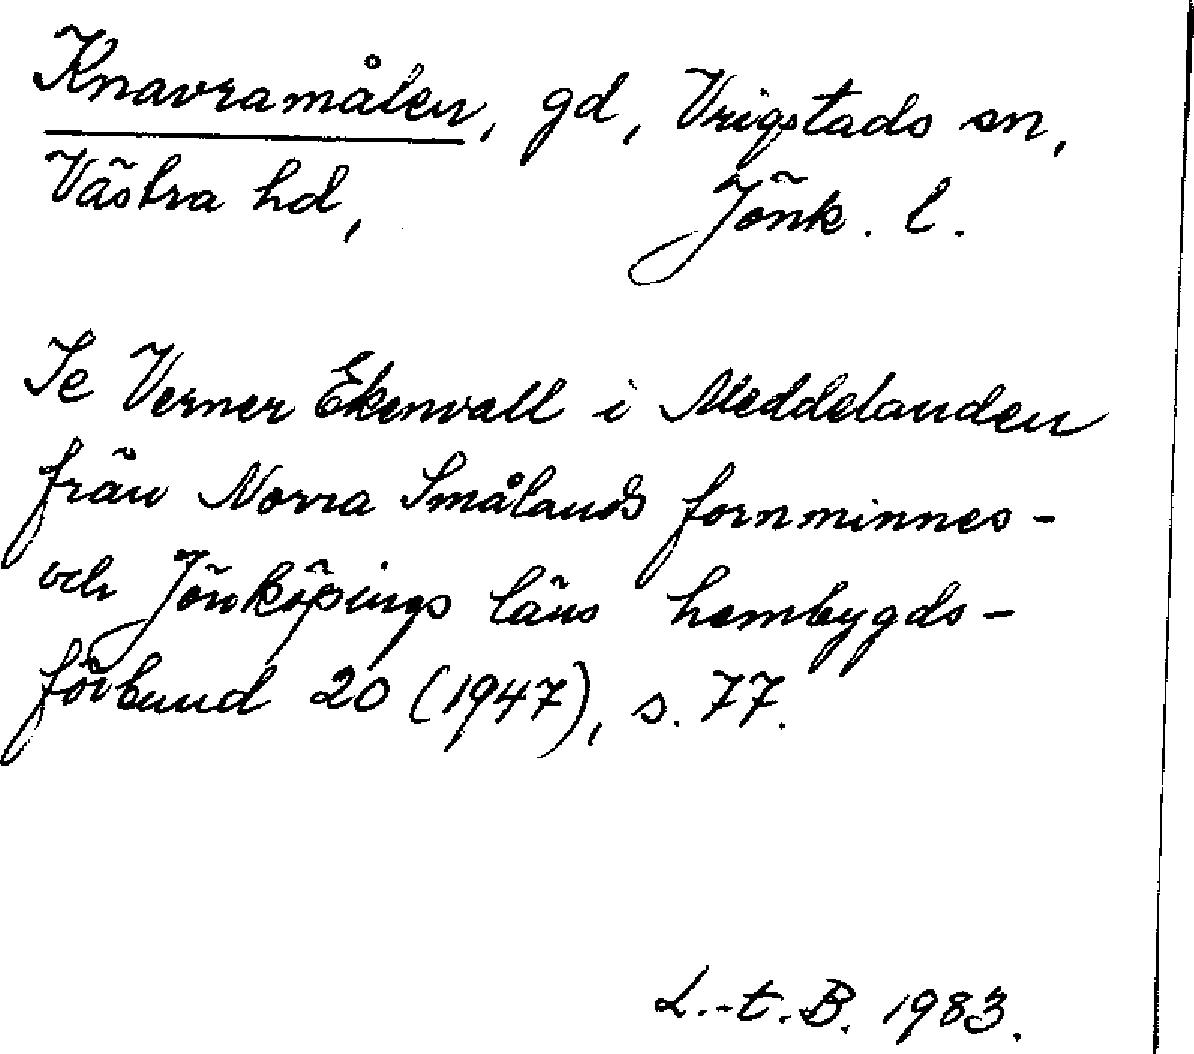 Knavramålen, gd, Vrigstads sn,
Västra hd, Jönk. l.
Se Verner Ekenvall i Meddelanden
från Norra Smålands fornminnes-
och Jönköpings läns hembygds-
förbund 20 (1947), s. 77.
L.-t. B. 1983.